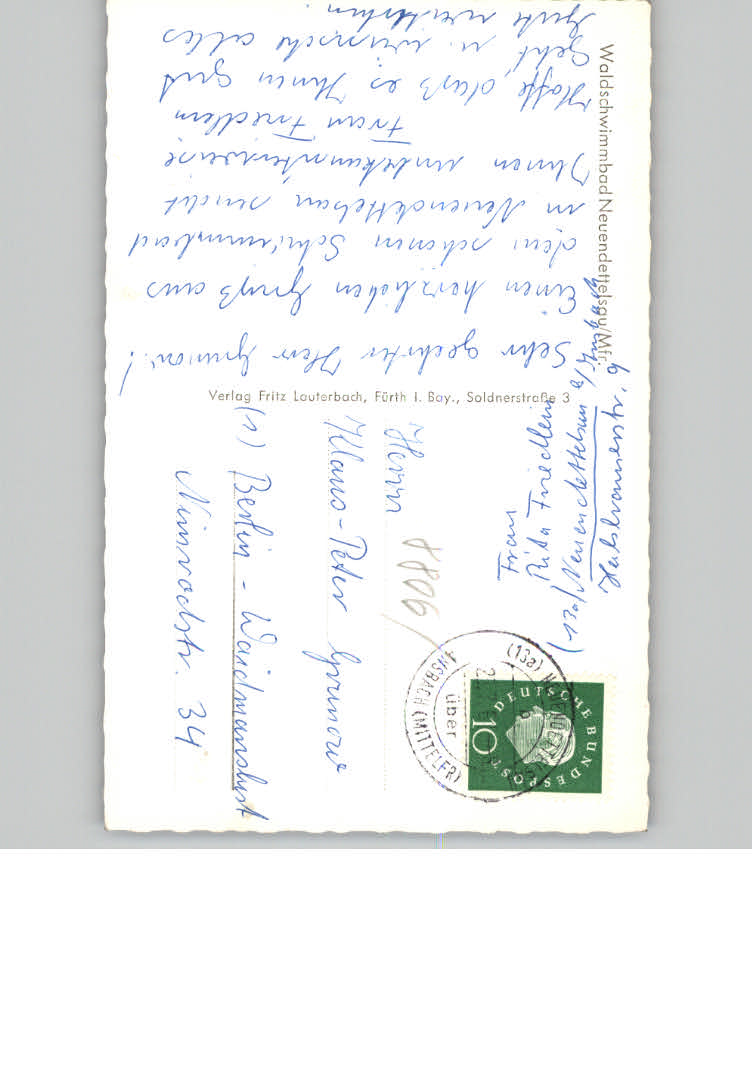 Waldschwimmbad Neuendettelsau/Mfr.
Sehr geehrter Herr Grunow!
Einen herzlichen Gruß aus
dem schönen Schwimmbad
in Neuendettelsau sendet
Ihnen unbekannterweise
Frau Friedlein
Hoffe, daß es Ihnen gut
geht, u. wünsche alles
Gute weiterhin.
Verlag Fritz Lauterbach, Fürth i. Bay., Soldnerstraße 3
Frau
Rita Friedlein
(13a) Neuendettelsau b/Ansbach
Heilsbronnerstr. 6
Herrn
Klaus-Peter Grunow
(1) Berlin - Waidmannslust
Nimrodstr. 34
8806
DEUTSCHE BUNDESPOST
10
(13a)
über
ANSBACH (MITTELFR)